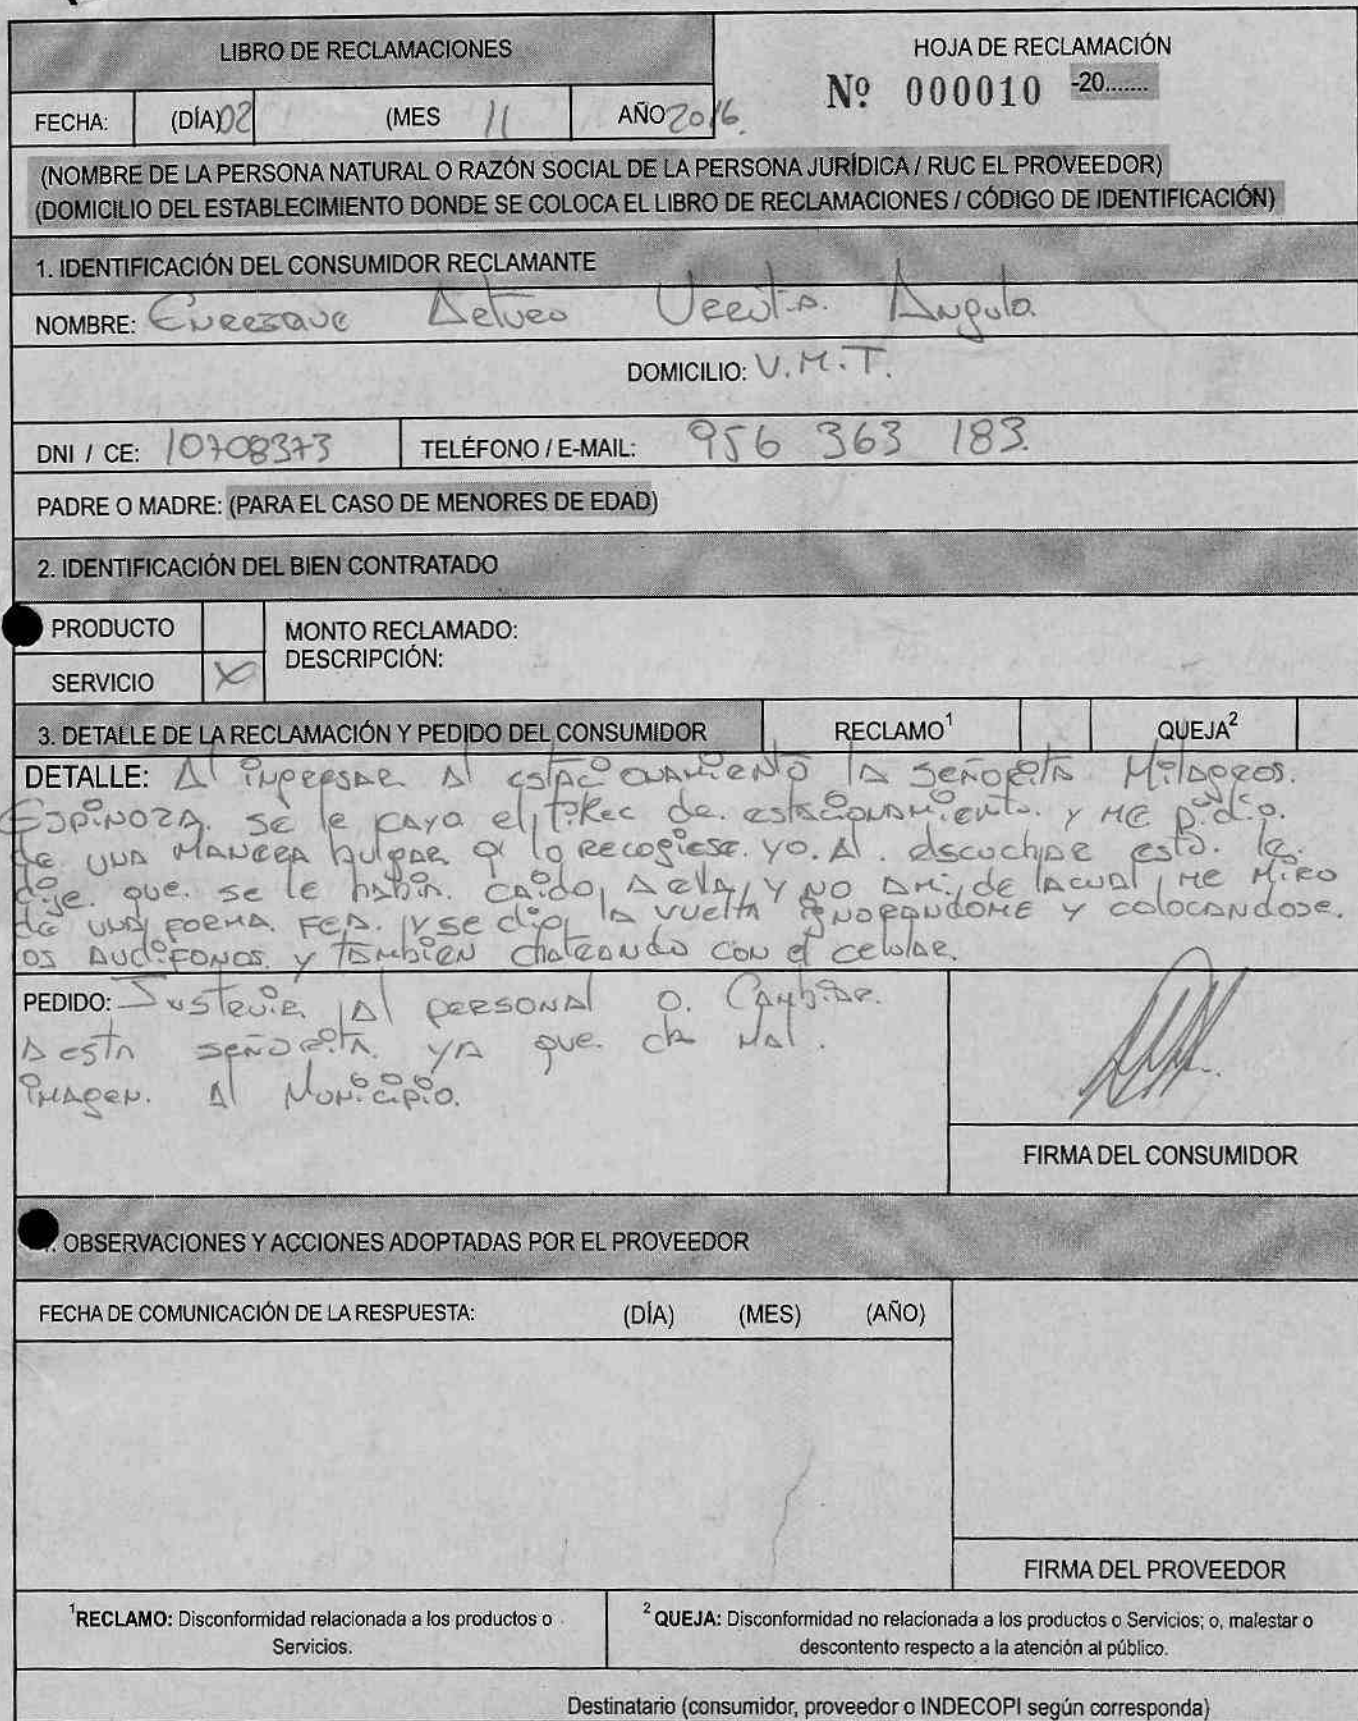 LIBRO DE RECLAMACIONES
HOJA DE RECLAMACIÓN
Nº 000010 -20.......
FECHA: (DÍA) 02 (MES 11 AÑO 2016.
(NOMBRE DE LA PERSONA NATURAL O RAZÓN SOCIAL DE LA PERSONA JURÍDICA / RUC EL PROVEEDOR)
(DOMICILIO DEL ESTABLECIMIENTO DONDE SE COLOCA EL LIBRO DE RECLAMACIONES / CÓDIGO DE IDENTIFICACIÓN)
1. IDENTIFICACIÓN DEL CONSUMIDOR RECLAMANTE
NOMBRE: Arturo Urrutia. Angulo.
DOMICILIO: V.M.T.
DNI / CE: 10708373 TELÉFONO / E-MAIL: 956 363 183.
PADRE O MADRE: (PARA EL CASO DE MENORES DE EDAD)
2. IDENTIFICACIÓN DEL BIEN CONTRATADO
PRODUCTO MONTO RECLAMADO:
DESCRIPCIÓN:
SERVICIO X
3. DETALLE DE LA RECLAMACIÓN Y PEDIDO DEL CONSUMIDOR RECLAMO1 QUEJA2
DETALLE: Al ingresar al estacionamiento la señorita Milagros.
Espinoza. se le cayo el tikec de estacionamiento. y me pidio.
de una manera bulgar q lo recogiese yo. Al. escuchar esto. le.
dije. que. se le habia. caido, a ella, y no ami, de lacual, me miro
de una forma fea. y se dio, la vuelta ignorandome y colocandose.
os audifonos. y tambien chateando con el celular.
PEDIDO: Justruir al personal o. Cambiar.
a esta señorita. ya que. da mal.
imagen. al Municipio.
FIRMA DEL CONSUMIDOR
. OBSERVACIONES Y ACCIONES ADOPTADAS POR EL PROVEEDOR
FECHA DE COMUNICACIÓN DE LA RESPUESTA: (DÍA) (MES) (AÑO)
FIRMA DEL PROVEEDOR
1RECLAMO: Disconformidad relacionada a los productos o
Servicios.
2 QUEJA: Disconformidad no relacionada a los productos o Servicios; o, malestar o
descontento respecto a la atención al público.
Destinatario (consumidor, proveedor o INDECOPI según corresponda)